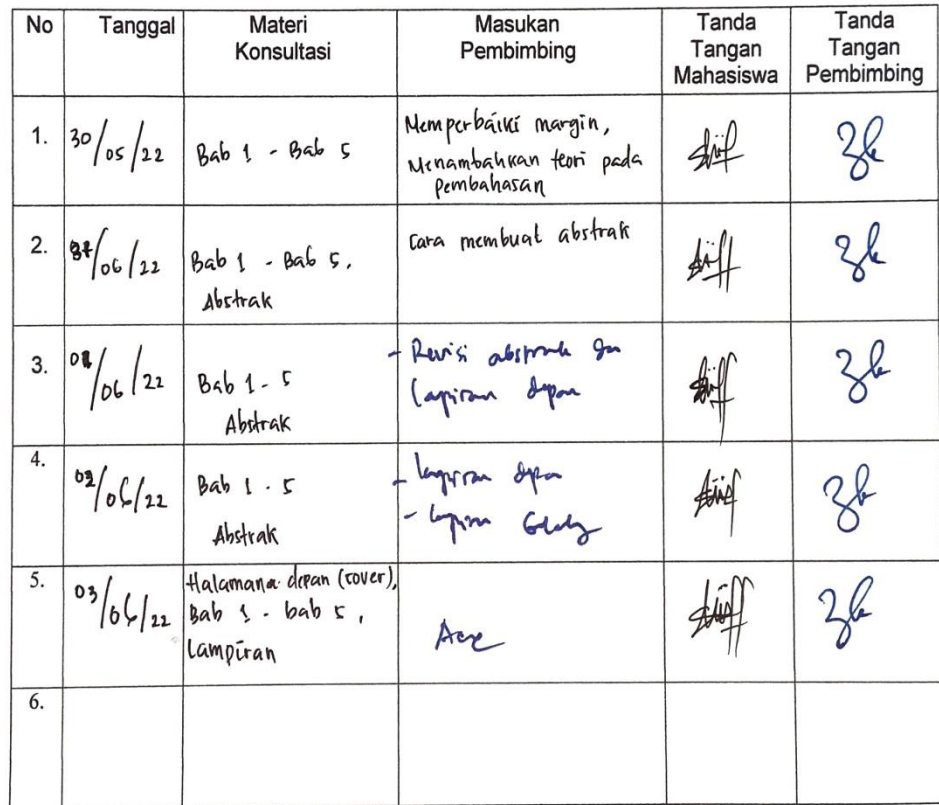 No Tanggal Materi Konsultasi Masukan Pembimbing Tanda Tangan Mahasiswa Tanda Tangan Pembimbing
1. 30/05/22 Bab 1 - Bab 5 Memperbaiki margin,
Menambahkan teori pada
pembahasan
2. /06/22 Bab 1 - Bab 5, Cara membuat abstrak
Abstrak
3. /06/22 Bab 1 - 5 - Revisi abstrak dan
Abstrak Lampiran depan
4. 02/06/22 Bab 1 - 5 - Lampiran depan
Abstrak - Lampiran
5. 03/06/22 Halamana depan (cover),
Bab 1 - bab 5, Acc
Lampiran
6.